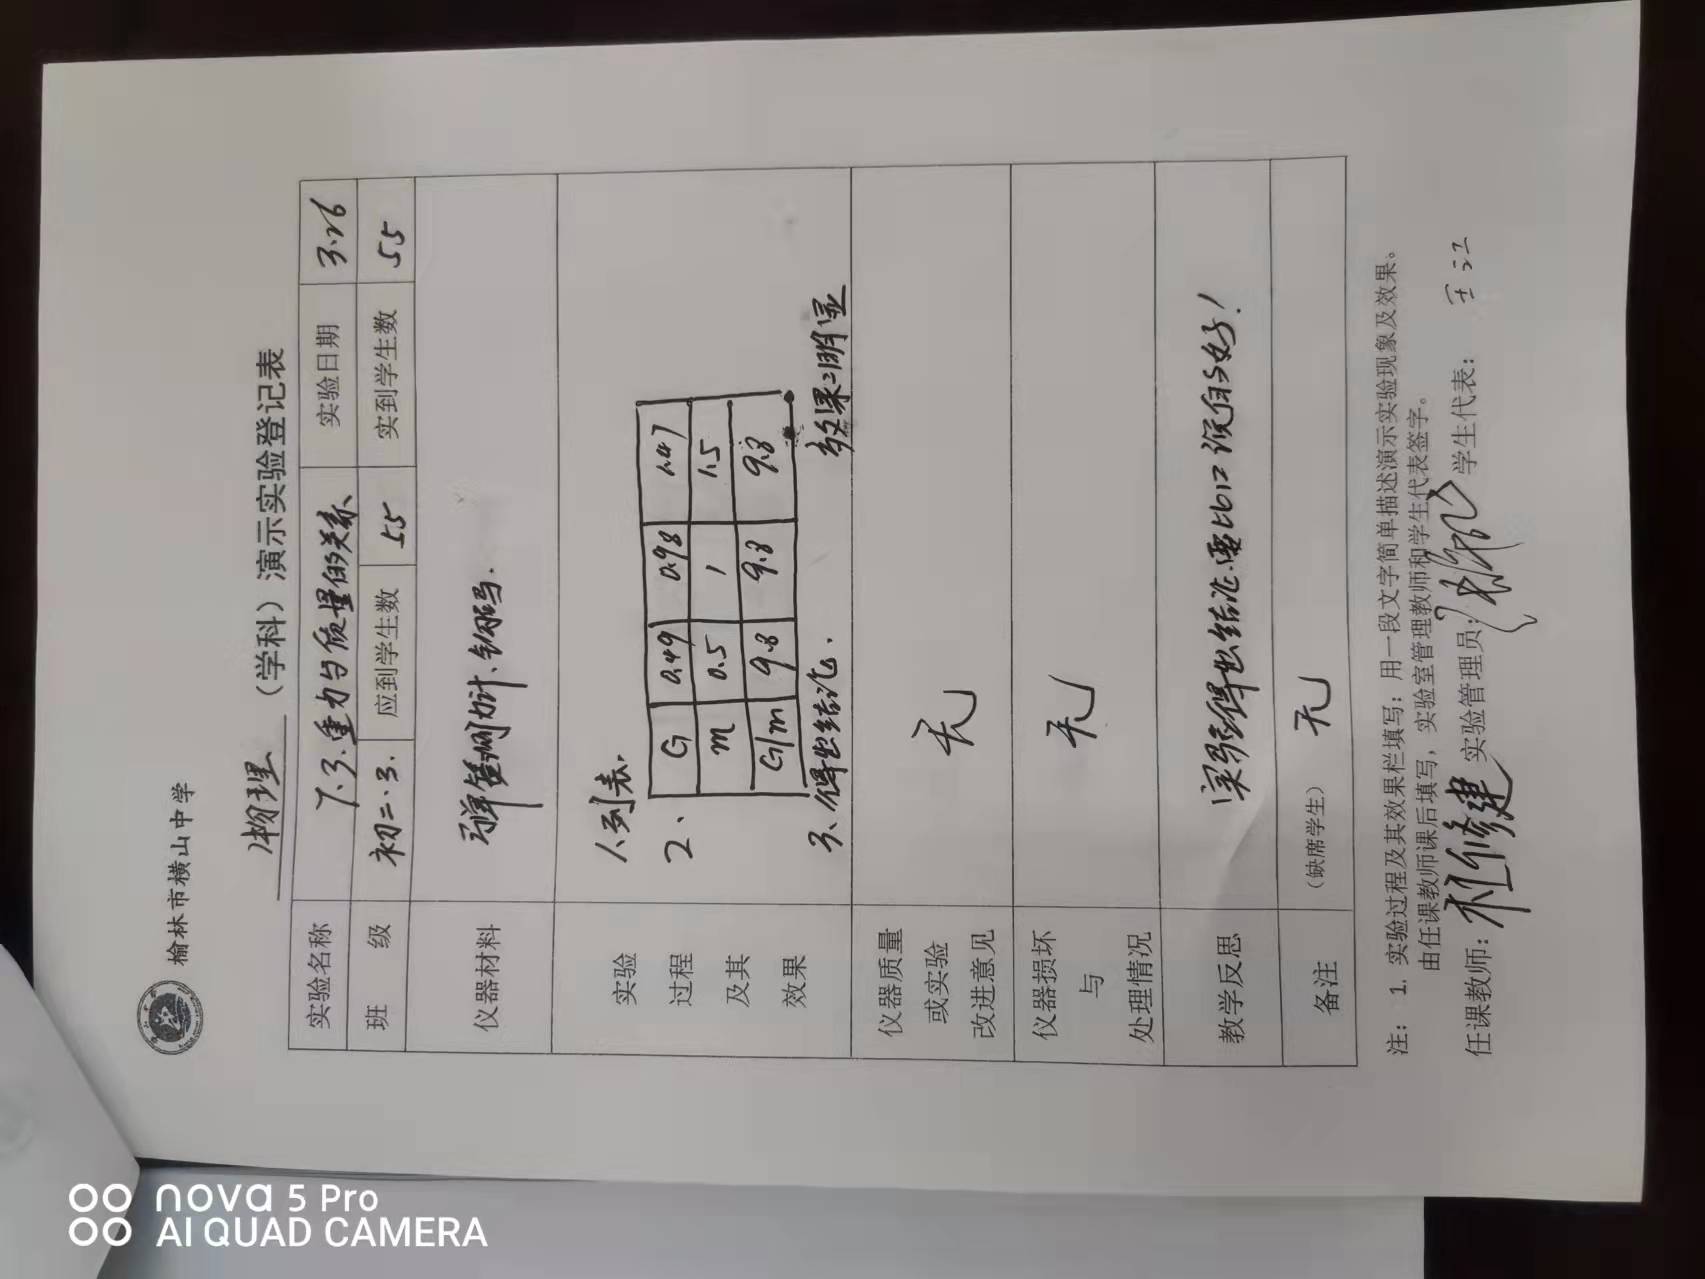 榆林市横山中学
物理（学科）演示实验登记表
实验名称 7.3.重力与质量的关系 实验日期 3.26
班 级 初二.3. 应到学生数 55 实到学生数 55
仪器材料 弹簧测力计、钩码.
实验
过程
及其
效果
1.列表.
2.
G 0.49 0.98 1.47
m 0.5 1 1.5
G/m 9.8 9.8 9.8
3、得出结论. 效果:明显
仪器质量
或实验
改进意见
无
仪器损坏
与
处理情况
无
教学反思 实验得出结论要比口说的好!
备注 （缺席学生） 无
注： 1. 实验过程及其效果栏填写：用一段文字简单描述演示实验现象及效果。
由任课教师课后填写，实验室管理教师和学生代表签字。
任课教师： 实验管理员： 学生代表：
nova 5 Pro
AI QUAD CAMERA